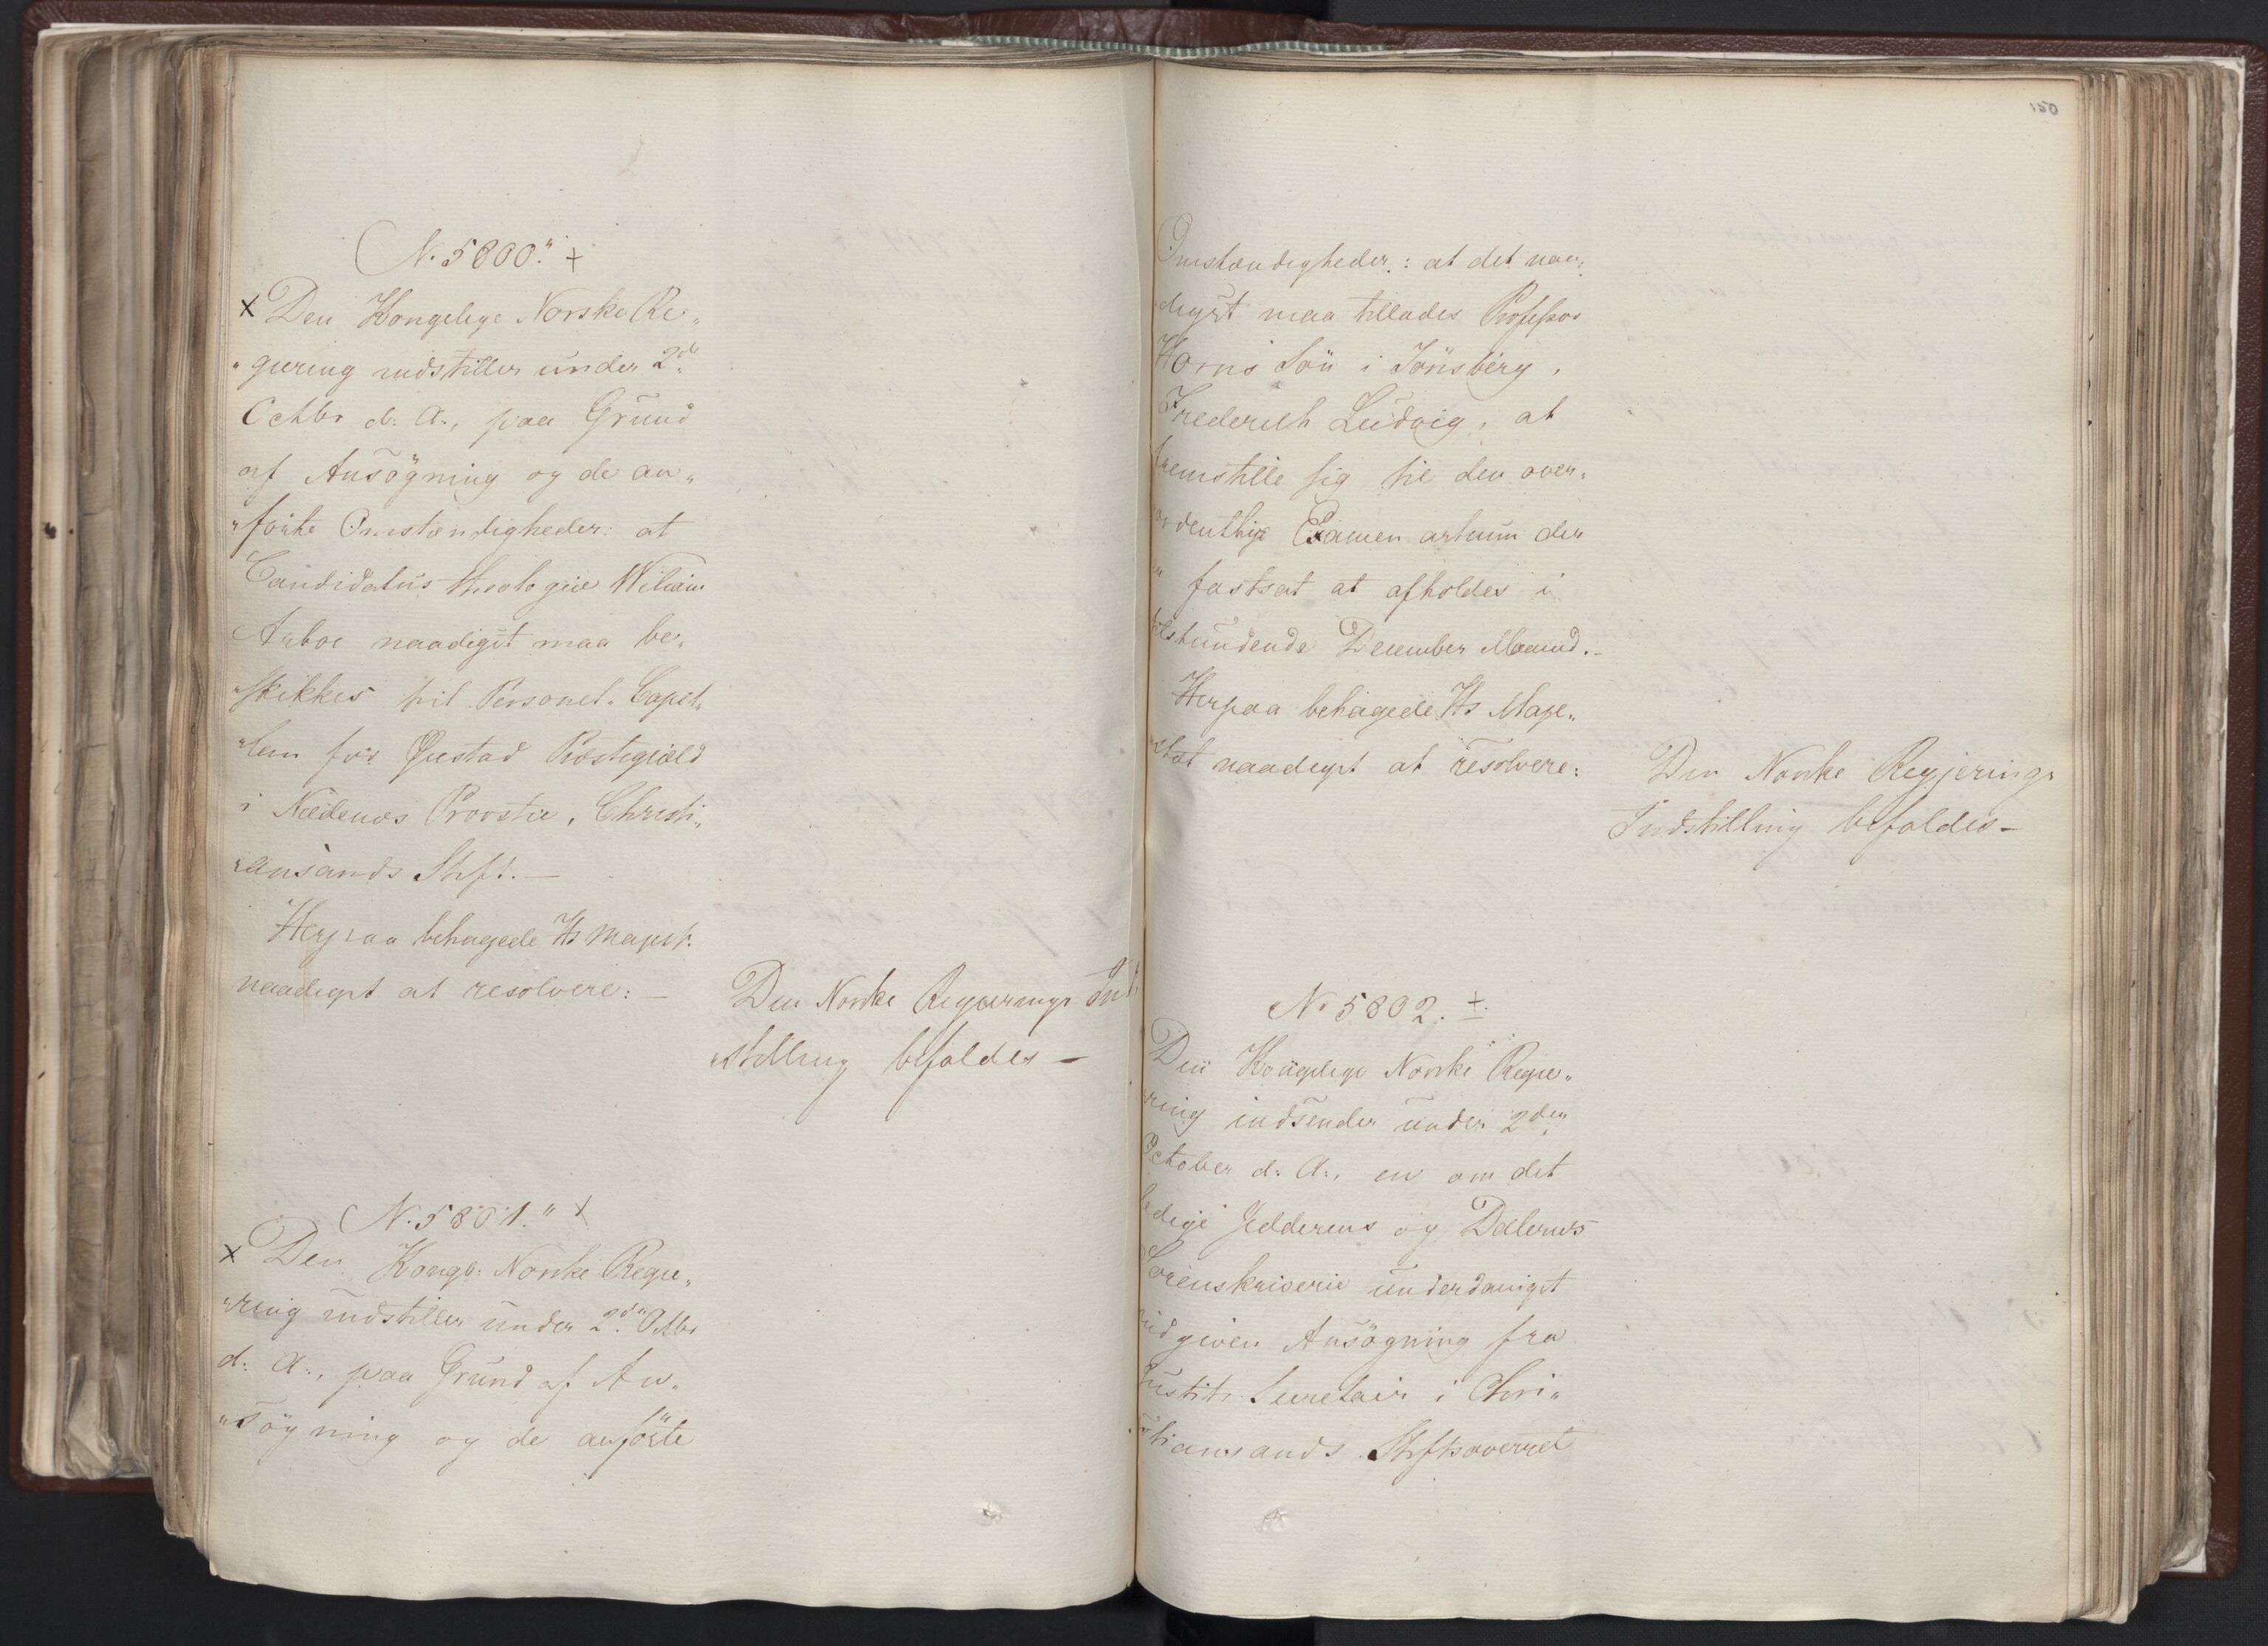 No 5800." +
x Den Kongelige Norske Re„
„giering indstiller under 2de
Octbr d: A:, paa Grund
af Ansøgning og de an„
„førte Omstændigheder: at
Candidatus theologiæ Wiliam
Arboe naadigst maa be„
„skikkes til Personel-Capel„
„lan for Øiestad Præstegield
i Nedenæs Provstie, Christi„
„ansands Stift. —
Herpaa behagede Hs Majest.
naadigst at resolvere: —
Den Norske Regierings Ind„
„stilling bifaldes —
No 5801." x
x Den Kongel: Norske Regie„
„ring indstiller under 2den Octbr
d: A:, paa Grund af An„
„søgning og de anførte
150
Omstændigheder: at det naa„
digst maa tillades Professor
Horns Søn i Tønsberg,
Frederich Ludvig, at
fremstille sig til den over„
ordentlige Examen artium der
er fastsat at afholdes i
tilstundende December Maaned. —
Herpaa behagede Hs Maje„
„stæt naadigst at resolvere:
Den Norske Regjerings
Indstilling bifaldes —
No 5802. +
Den Kongelige Norske Regie„
ring indsender under 2den
October d: A:, en om det
ledige Jedderens og Dalernes
Sorenskriverie underdanigst
indgiven Ansøgning fra
Justits Secretair i Chri„
stiansands Stiftsoverret